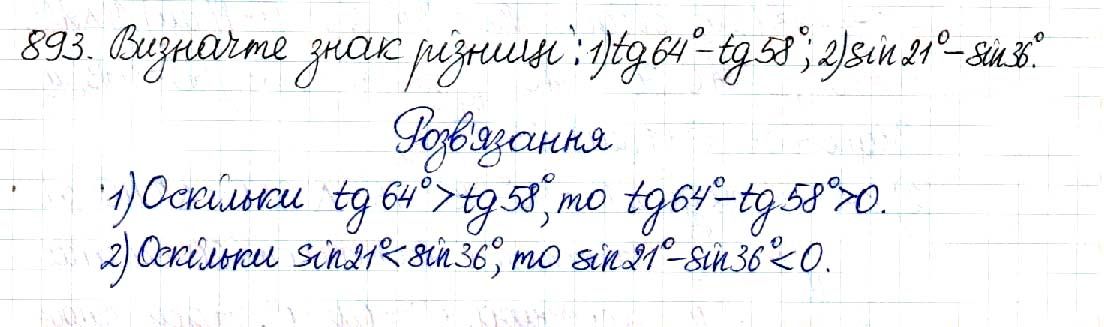 893. Визначте знак різниці: 1) tg 64° - tg 58°; 2) sin 21° - sin 36°.
Розв'язання
1) Оскільки tg 64° > tg 58°, то tg 64° - tg 58° > 0.
2) Оскільки sin 21° < sin 36°, то sin 21° - sin 36° < 0.